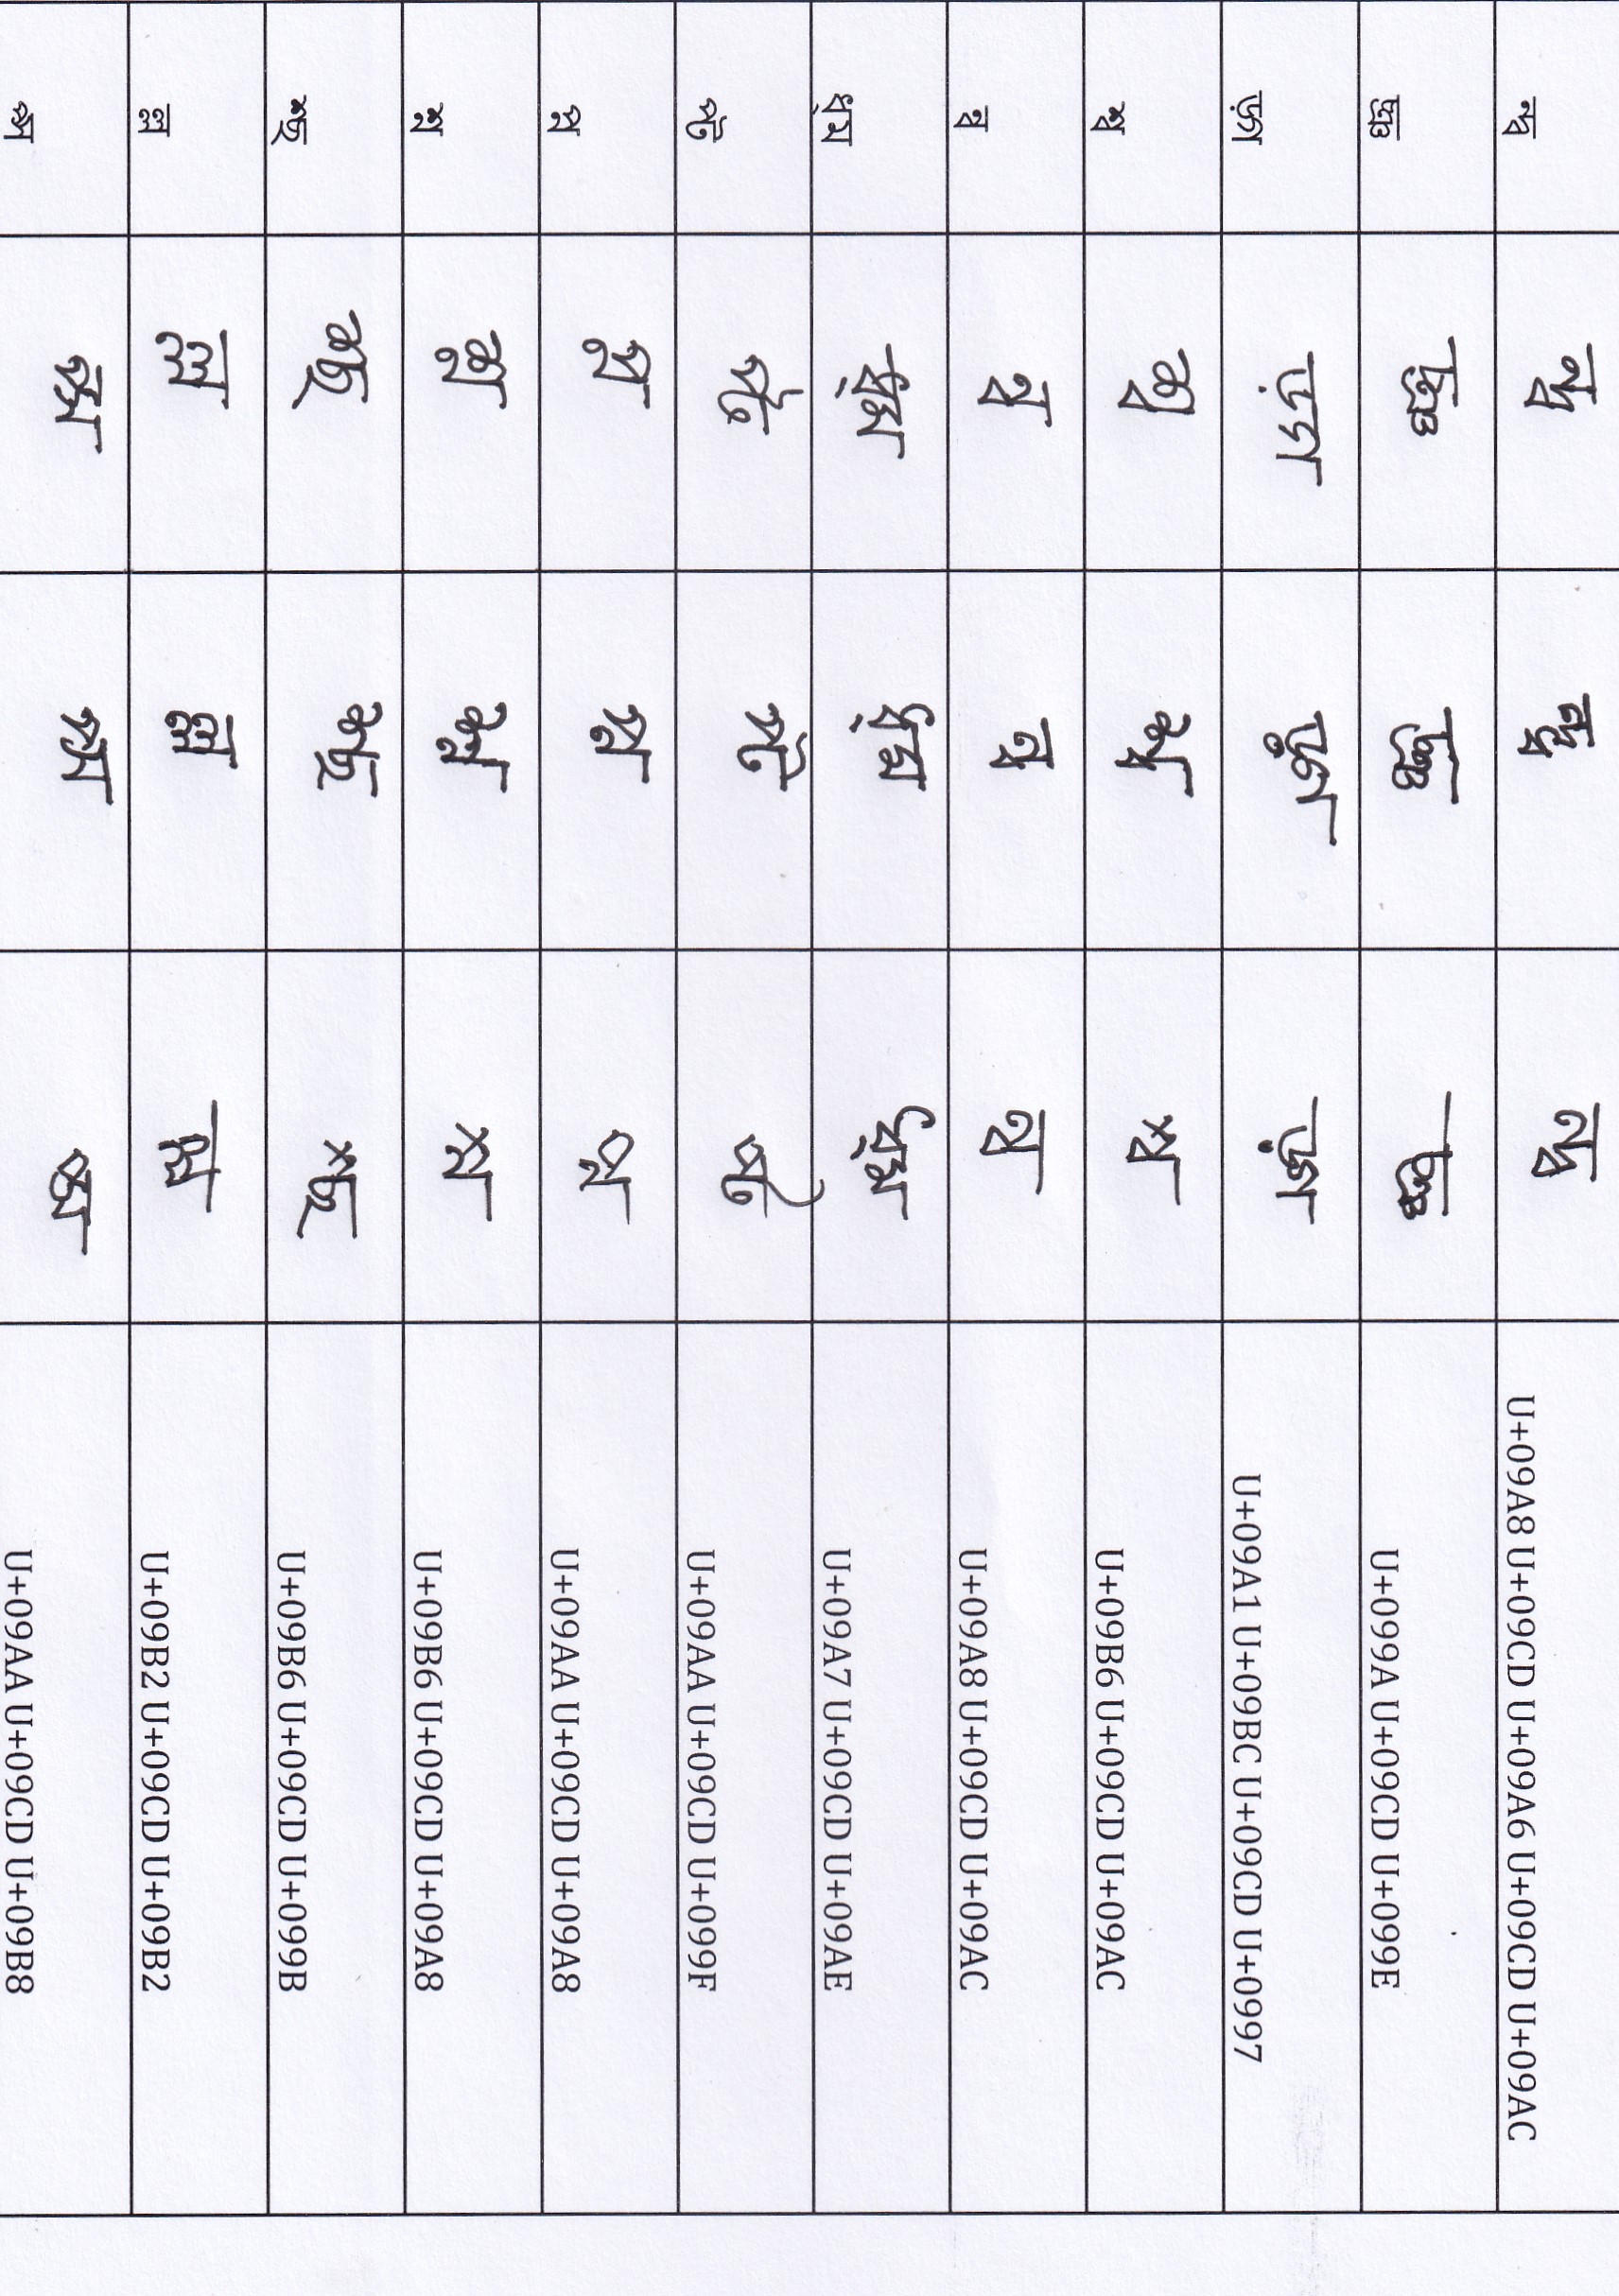 ন্দ্ব ন্দ্ব ন্দ্ব ন্দ্ব U+09A8 U+09CD U+09A6 U+09CD U+09AC
চ্ঞ চ্ঞ চ্ঞ চ্ঞ U+099A U+09CD U+099E
ড়্গ ড়্গ ড়্গ ড়্গ U+09A1 U+09BC U+09CD U+0997
শ্ব শ্ব শ্ব শ্ব U+09B6 U+09CD U+09AC
ন্ব ন্ব ন্ব ন্ব U+09A8 U+09CD U+09AC
ধ্ম ধ্ম ধ্ম ধ্ম U+09A7 U+09CD U+09AE
প্ট প্ট প্ট প্ট U+09AA U+09CD U+099F
প্ন প্ন প্ন প্ন U+09AA U+09CD U+09A8
শ্ন শ্ন শ্ন শ্ন U+09B6 U+09CD U+09A8
শ্ছ শ্ছ শ্ছ শ্ছ U+09B6 U+09CD U+099B
ল্ল ল্ল ল্ল ল্ল U+09B2 U+09CD U+09B2
প্স প্স প্স প্স U+09AA U+09CD U+09B8